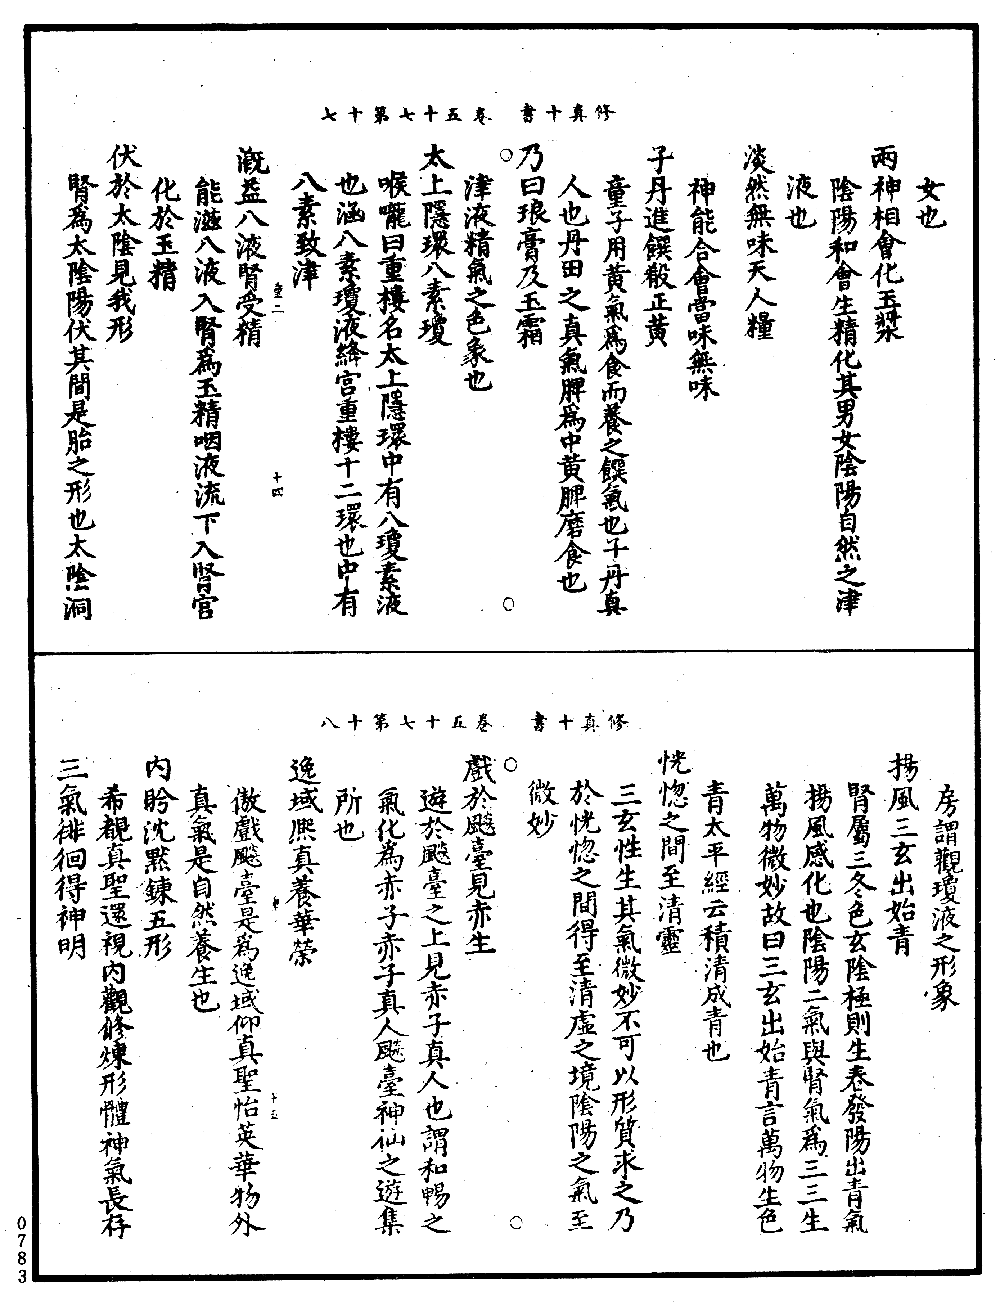 修真十書　卷五十七第十七
女也
兩神相會化玉漿
陰陽和會生精化其男女陰陽自然之津
液也
淡然無味天人糧
神能合會當味無味
子丹進饌殽正黃
童子用黃氣為食而養之饌氣也子丹真
人也丹田之真氣脾為中黃脾磨食也
乃曰琅膏及玉霜
津液精氣之色象也
太上隱環八素瓊
喉嚨曰重樓名太上隱環中有八瓊素液
也涵八素瓊液絳宮重樓十二環也中有
八素致津
十四
溉益八液腎受精
能滋八液入腎為玉精咽液流下入腎官
化於玉精
伏於太陰見我形
腎為太陰陽伏其間是胎之形也太陰洞
修真十書　卷五十七第十八
房謂觀瓊液之形象
揚風三玄出始青
腎屬三冬色玄陰極則生春發陽出青氣
揚風感化也陰陽二氣與腎氣為三三生
萬物微妙故曰三玄出始青言萬物生色
青太平經云積清成青也
恍惚之間至清靈
三玄性生其氣微妙不可以形質求之乃
於恍惚之間得至清虛之境陰陽之氣至
微妙
戲於飈臺見赤生
遊於飈臺之上見赤子真人也謂和暢之
氣化為赤子赤子真人飈臺神仙之遊集
所也
逸域熙真養華榮
十五
傲戲飈臺是為逸域仰真聖怡英華物外
真氣是自然養生也
內盻沈默鍊五形
希覩真聖還視內觀修煉形體神氣長存
三氣徘徊得神明
0783